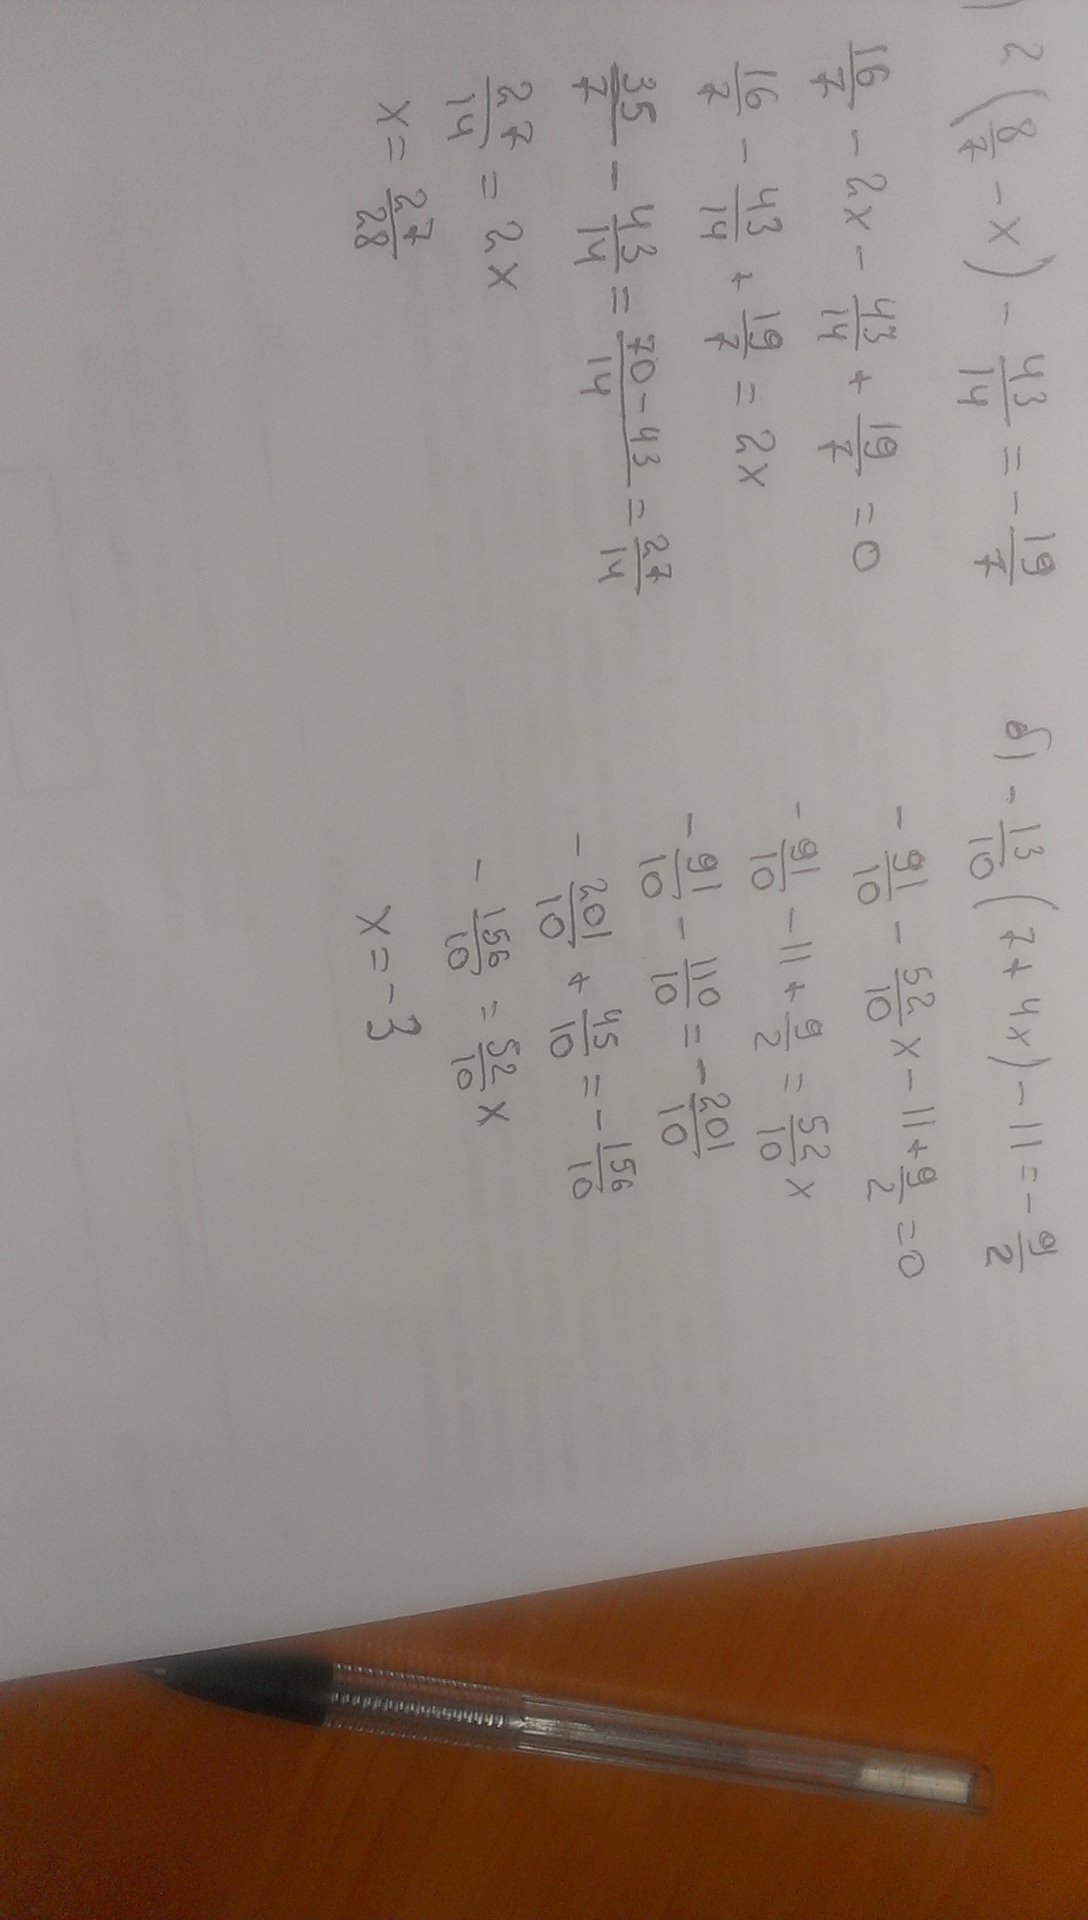 ) 2(8/7 - x) - 43/14 = - 19/7
16/7 - 2x - 43/14 + 19/7 = 0
16/7 - 43/14 + 19/7 = 2x
35/7 - 43/14 = 70-43/14 = 27/14
27/14 = 2x
x = 27/28
б) - 13/10 (7 + 4x) - 11 = - 9/2
- 91/10 - 52/10 x - 11 + 9/2 = 0
- 91/10 - 11 + 9/2 = 52/10 x
- 91/10 - 110/10 = - 201/10
- 201/10 + 45/10 = - 156/10
- 156/10 = 52/10 x
x = - 3